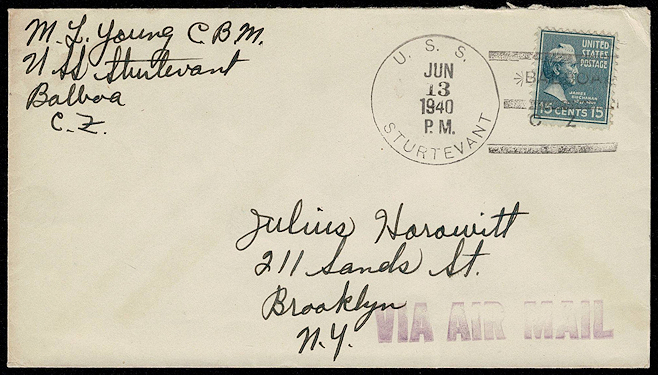 M. L. Young C.B.M.
U SS Sturtevant
Balboa
C. Z.
U. S. S.
JUN
13
1940
P. M.
STURTEVANT
UNITED
STATES
POSTAGE
BALBOA
JAMES
BUCHANAN
15 CENTS 15
C Z
Julius Horowitt
211 Sands St.
Brooklyn
N.Y.
VIA AIR MAIL